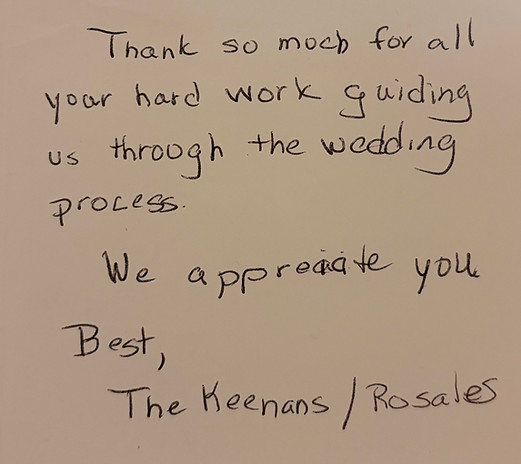 Thank so moch for all
your hard work guiding
us through the wedding
process.
We appreciate you
Best,
The Keenans / Rosales